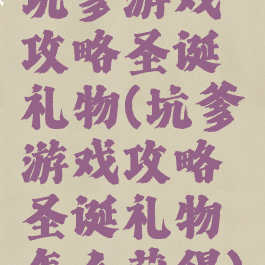 坑爹游戏
攻略圣诞
礼物(坑爹
游戏攻略
圣诞礼物
怎么获得)